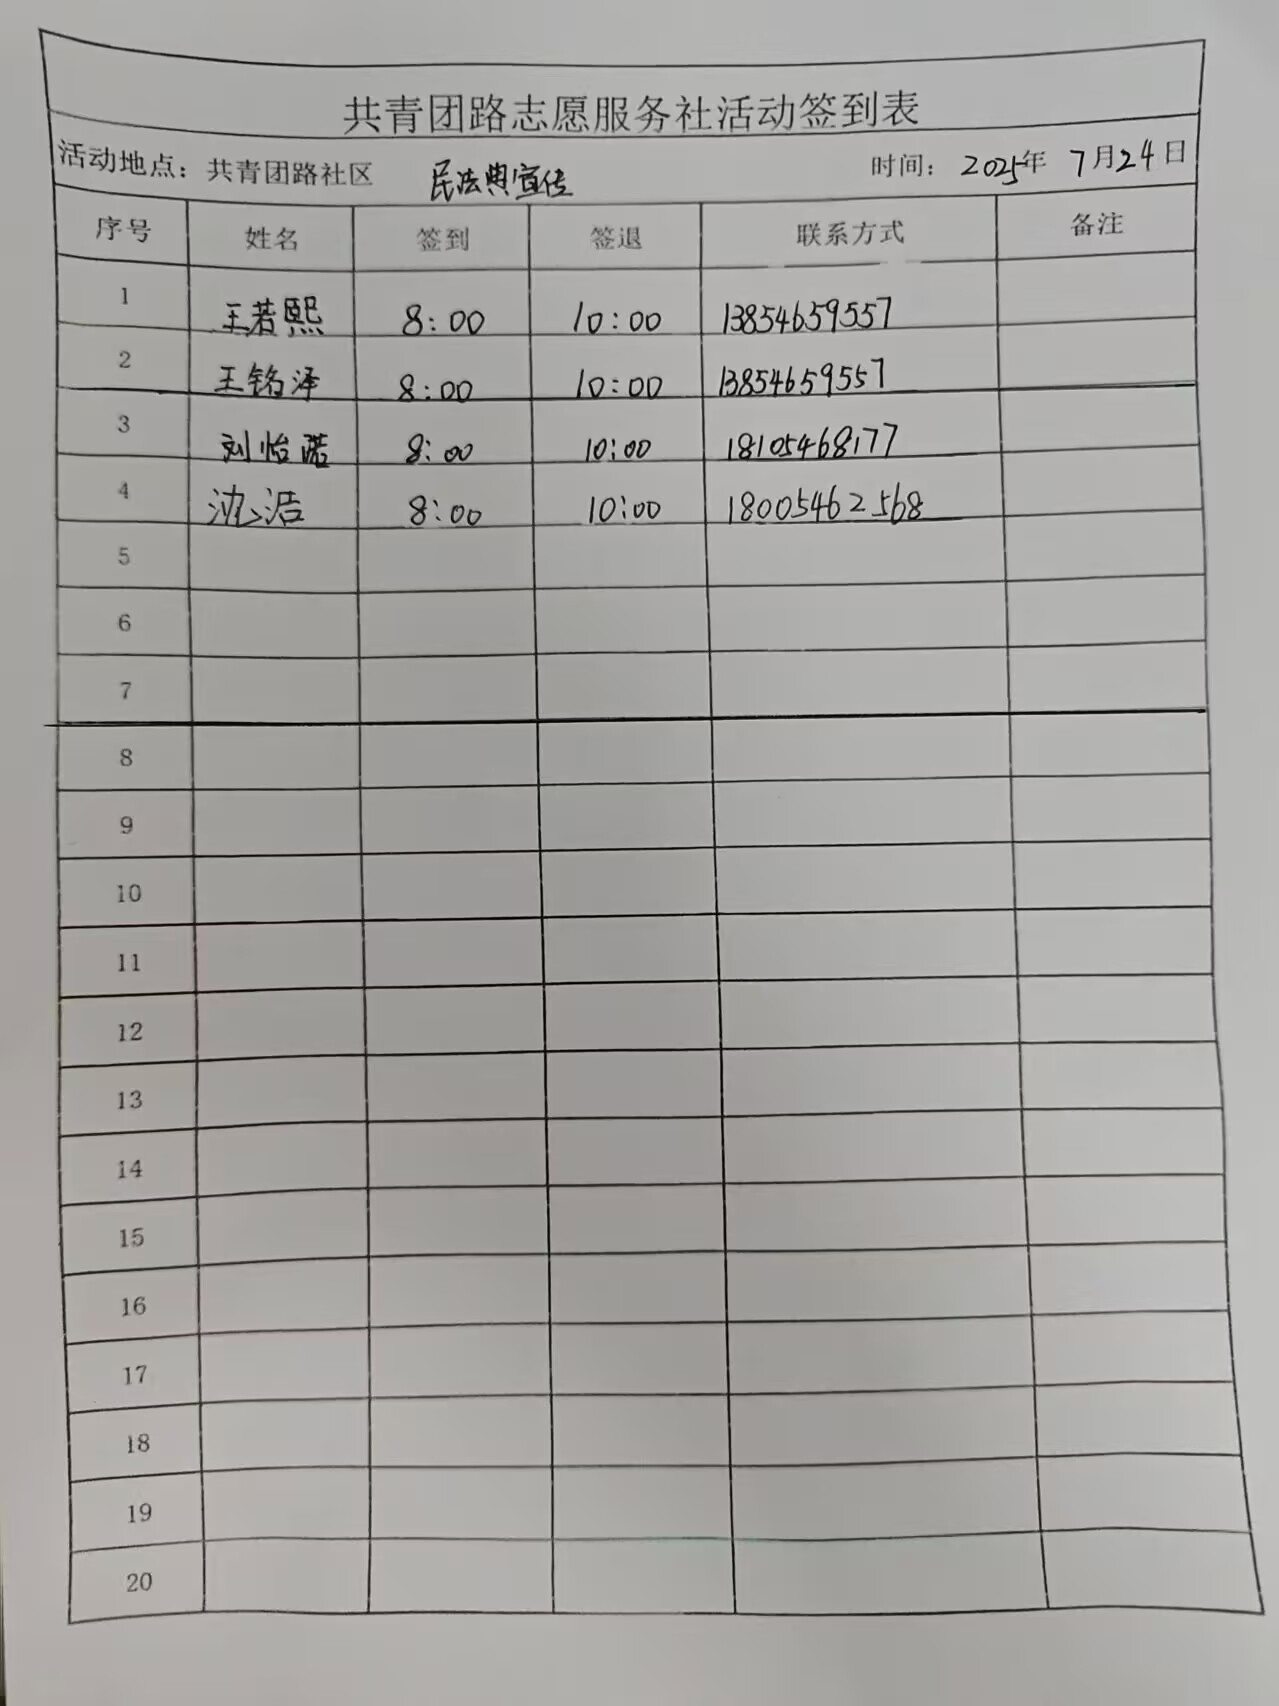 共青团路志愿服务社活动签到表
活动地点：共青团路社区 民法典宣传 时间：2025年 7月24日
序号 姓名 签到 签退 联系方式 备注
1 王若熙 8:00 10:00 13854659557
2 王铭泽 8:00 10:00 13854659557
3 刘怡諾 8:00 10:00 18105468177
4 沈浩 8:00 10:00 18005462568
5
6
7
8
9
10
11
12
13
14
15
16
17
18
19
20